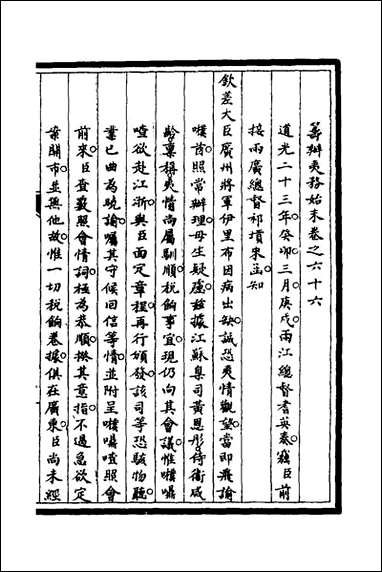 籌辦夷務始末卷之六十六
道光二十三年癸卯三月庚戌兩江總督耆英奏竊臣前
接兩廣總督祁𡎴來函知
欽差大臣廣州將軍伊里布因病出缺誠恐夷情觀望當即飛諭
噗酋照常辦理毋生疑慮茲據江蘇臬司黃恩彤侍衛咸
齡稟稱夷情尚屬馴順稅餉事宜現仍向其會議惟噗嘣
喳欲赴江浙與臣面定章程再行頒發該司等恐駭物聽
業已曲為曉諭囑其守候回信等情並附呈噗嘣喳照會
前來臣查覈照會情詞極為恭順揆其意指不過急欲定
案開市並無他故惟一切稅餉卷據俱在廣東臣尚未經